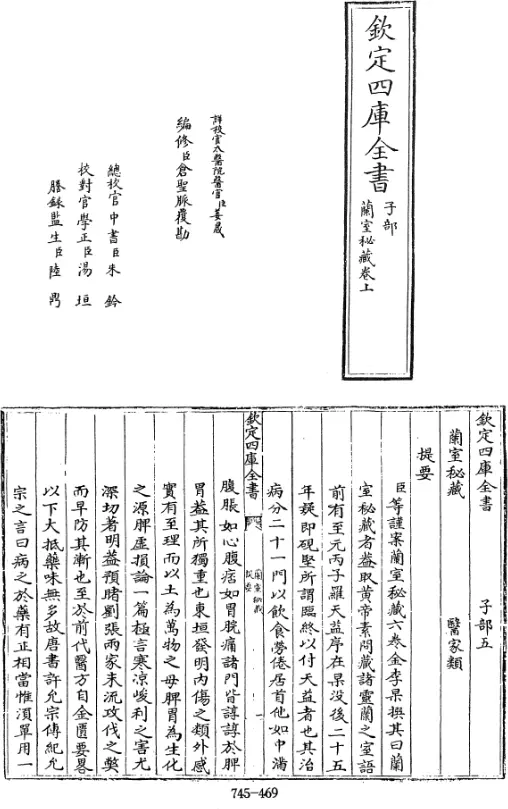 欽定四庫全書
子部
蘭室秘藏卷上
詳校官太醫院醫官臣姜晟
編修臣倉聖脈覆勘
總校官中書臣朱鈐
校對官學正臣湯垣
謄錄監生臣陸
欽定四庫全書 子部五
蘭室秘藏 醫家類
提要
臣等謹案蘭室秘藏六卷金李杲撰其曰蘭
室秘藏者葢取黄帝素問藏諸靈蘭之室語
前有至元丙子羅天益序在杲没後二十五
年疑即硯堅所謂臨終以付天益者也其治
病分二十一門以飲食勞倦居首他如中滿
欽定四庫全書
蘭室秘藏
提要
腹脹如心腹痞如胃脘痛諸門皆諄諄於脾
胃葢其所獨重也東垣發明内傷之類外感
實有至理而以土為萬物之母脾胃為生化
之源脾虚損論一篇極言寒凉峻利之害尤
深切著明葢預睹劉張兩家末流攻伐之弊
而早防其漸也至於前代醫方自金匱要畧
以下大抵藥味無多故唐書許允宗傳紀允
宗之言曰病之於藥有正相當惟須單用一
745-469